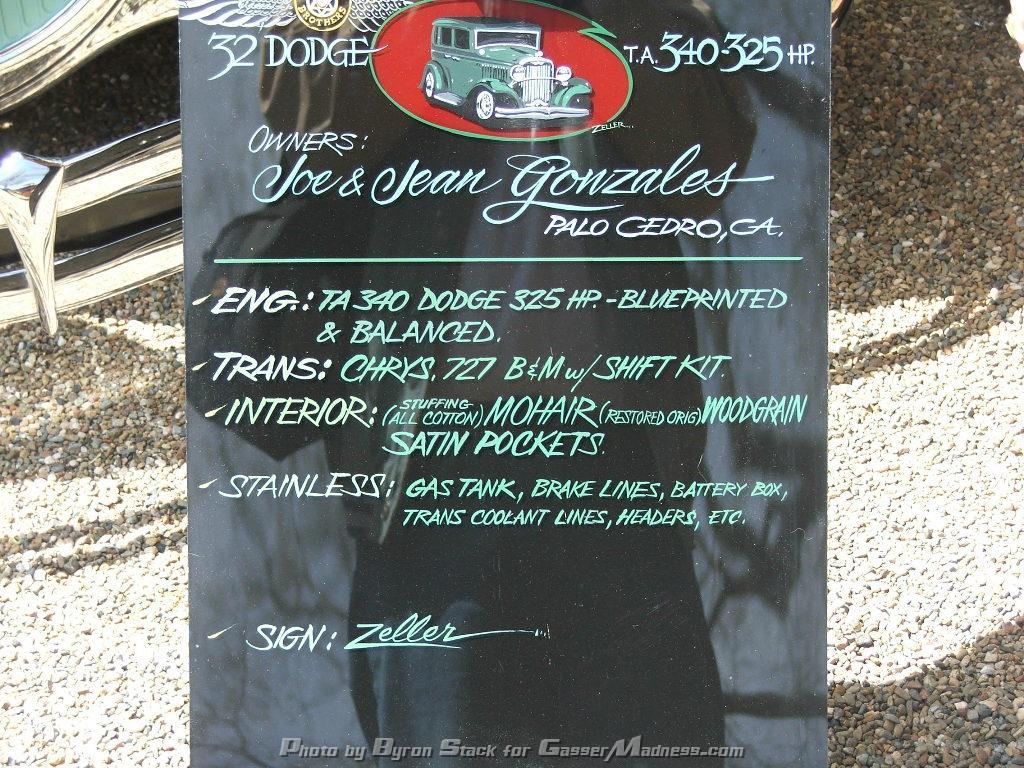 BROTHERS
32 DODGE T.A. 340-325 HP.
ZELLER...
OWNERS:
Joe & Jean Gonzales
PALO CEDRO, CA.
ENG.: TA 340 DODGE 325 HP - BLUEPRINTED
& BALANCED.
TRANS: CHRYS. 727 B&M w/ SHIFT KIT.
INTERIOR: (STUFFING ALL COTTON) MOHAIR (RESTORED ORIG) WOODGRAIN
SATIN POCKETS.
STAINLESS: GAS TANK, BRAKE LINES, BATTERY BOX,
TRANS COOLANT LINES, HEADERS, ETC.
SIGN: Zeller
Photo by Byron Stack for GasserMadness.com